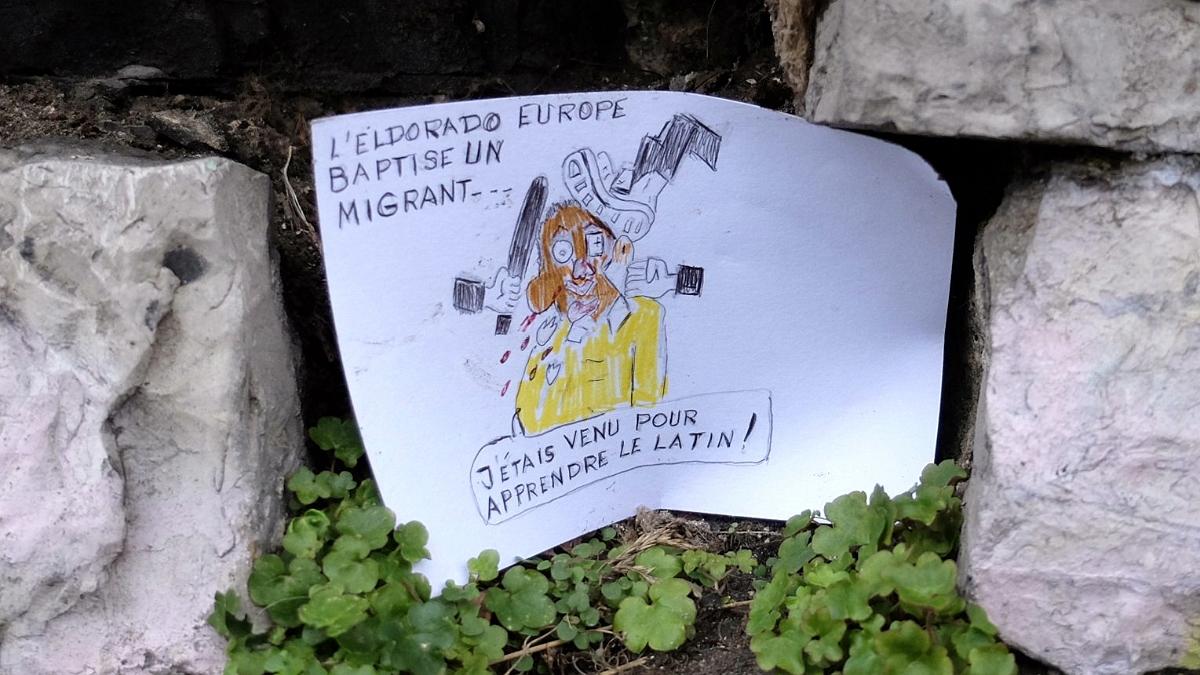 L'ÉLDORADO EUROPE
BAPTISE UN
MIGRANT---
J'ÉTAIS VENU POUR
APPRENDRE LE LATIN!